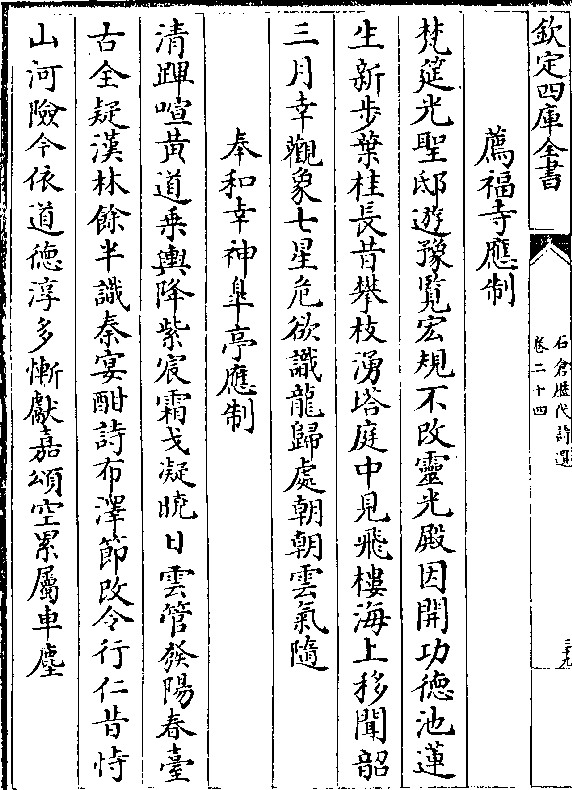 欽定四庫全書
石倉歴代詩選
卷二十四
三九
薦福寺應制
梵筵光聖邸遊豫覽宏規不改靈光殿因開功德池蓮
生新步葉桂長昔攀枝湧塔庭中見飛樓海上移聞韶
三月幸觀象七星危欲識龍歸處朝朝雲氣隨
奉和幸神臯亭應制
清蹕喧黄道乗輿降紫宸霜戈凝曉日雲管發陽春臺
古全疑漢林餘半識秦宴酣詩布澤節改令行仁昔恃
山河險今依道德淳多慚獻嘉頌空累屬車塵